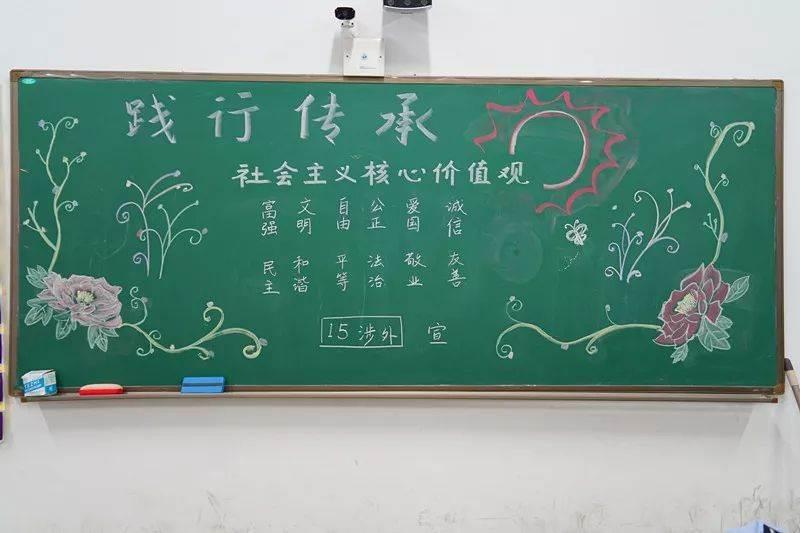 践行传承
社会主义核心价值观
富强 文明 自由 公正 爱国 诚信
民主 和谐 平等 法治 敬业 友善
15涉外 宣